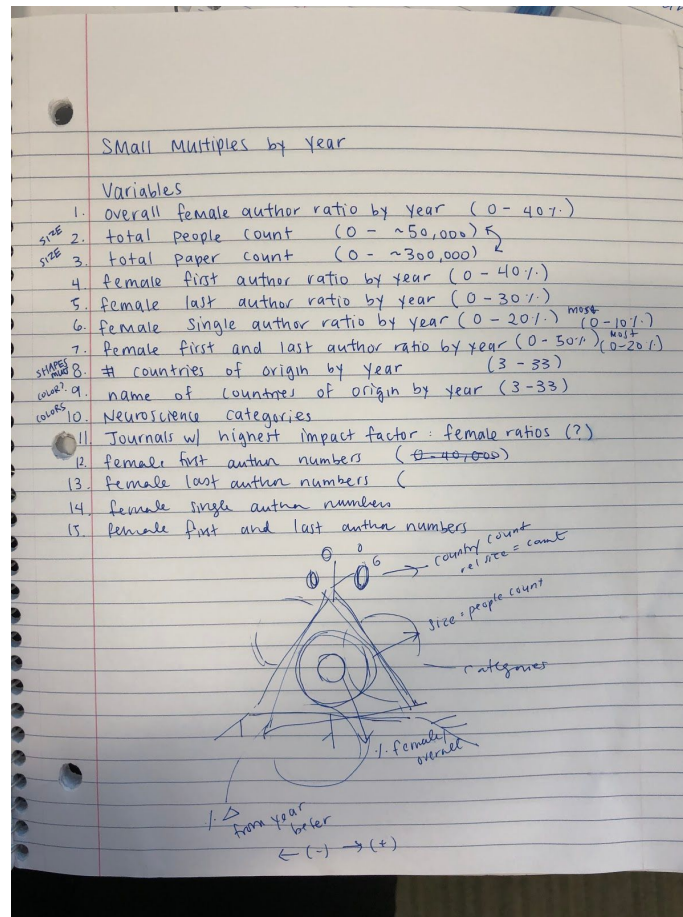 Small Multiples by Year
Variables
1. overall female author ratio by year (0 - 40%)
SIZE 2. total people count (0 - ~50,000)
SIZE 3. total paper count (0 - ~300,000)
4. female first author ratio by year (0 - 40%)
5. female last author ratio by year (0 - 30%)
6. female single author ratio by year (0 - 20%) most (0-10%)
7. female first and last author ratio by year (0 - 50%) most (0-20%)
SHAPES 8. # countries of origin by year (3 - 33)
COLOR? 9. name of countries of origin by year (3-33)
COLORS 10. Neuroscience categories
11. Journals w/ highest impact factor : female ratios (?)
12. female first author numbers (0-40,000)
13. female last author numbers (
14. female single author numbers
15. female first and last author numbers
country count
rel size = count
size = people count
categories
% female
overall
% Δ
from year
befer
← (-) → (+)